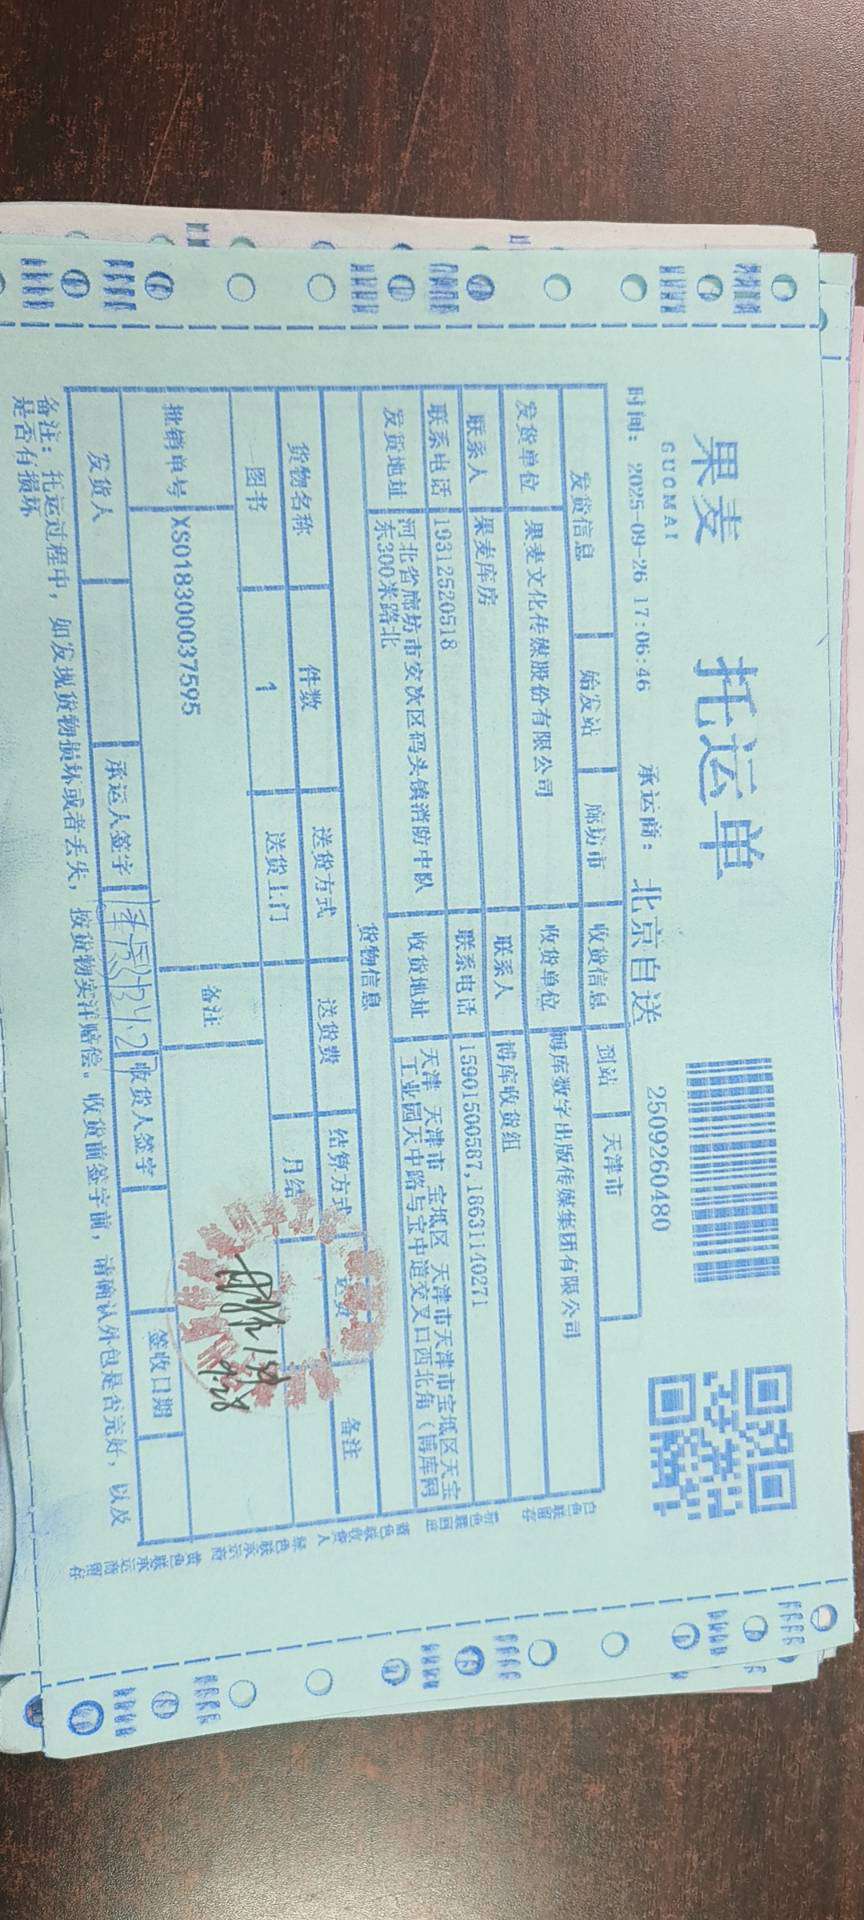 果麦 托运单
GUOMAI
2509260480
时间: 2025-09-26 17:06:46 承运商: 北京自送
发货信息 始发站 廊坊市 收货信息 到站 天津市
发货单位 果麦文化传媒股份有限公司 收货单位 博库数字出版传媒集团有限公司
联系人 果麦库房 联系人 博库收货组
联系电话 19312520518 联系电话 15901500587,18631140271
发货地址 河北省廊坊市安次区码头镇消防中队东300米路北 收货地址 天津 天津市 宝坻区 天津市天津市宝坻区天宝工业园天中路与宝中道交叉口西北角(博库网
货物信息
货物名称 件数 送货方式 送货费 结算方式 备注
图书 1 送货上门 月结
批销单号 XS018300037595 备注
发货人 承运人签字 收货人签字 签收日期
备注: 托运过程中, 如发现货物损坏或者丢失, 按货物实洋赔偿。收货前签字前, 请确认外包是否完好, 以及
是否有损坏